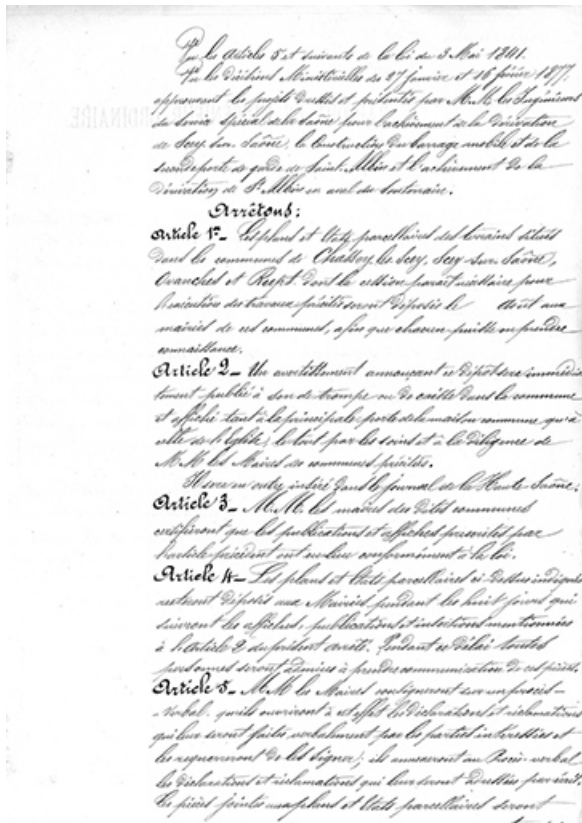 Vu les Articles 5 et suivants de la loi du 3 Mai 1841.
Vu les décisions Ministérielles des 27 janvier et 16 février 1877,
approuvant les projets dressés et présentés par M.M. les Ingénieurs
du Service Spécial de la Saône, pour l'achèvement de la dérivation
de Scey-sur-Saône, la Construction du barrage mobile et de la
seconde porte de garde de Saint-Albin et l'achèvement de la
dérivation de St Albin en aval du Souterrain.
Arrêtons:
Article 1er_ Les plans et Etats parcellaires des terrains situés
dans les communes de Chassey les Scey, Scey-sur-Saône,
Ovanches et Rupt, dont la cession paraît nécessaire pour
l'exécution des travaux précités seront déposés le août aux
mairies de ces communes, afin que chacun puisse en prendre
connaissance.
Article 2_ Un avertissement annonçant ce dépôt sera immédia
tement publié à son de trompe ou de caisse dans la commune
et affiché tant à la principale porte de la maison commune qu'à
celle de l'Eglise, le tout par les soins et à la diligence de
M.M. les Maires des communes précitées.
Il sera en outre inséré dans le journal de la Haute-Saône.
Article 3_ M.M. les maires des dites communes
certifieront que les publications et affiches prescrites par
l'article précédent ont eu lieu conformément à la loi.
Article 4_ Les plans et Etats parcellaires ci-dessus indiqués
resteront déposés aux Mairies pendant les huit jours qui
suivront les affiches, publications et insertions mentionnées
à l'Article 2 du présent arrêté. Pendant ce délai toutes
personnes seront admises à prendre communication de ces pièces.
Article 5_ M.M. les Maires consigneront sur un procès-
-verbal qu'ils ouvriront à cet effet les déclarations et réclamations
qui leur seront faites verbalement par les parties intéressées et
les requerreront de les signer; ils annexeront au Procès-verbal
les déclarations et réclamations qui leur seront adressées par écrit.
Les pièces jointes aux plans et Etats parcellaires seront